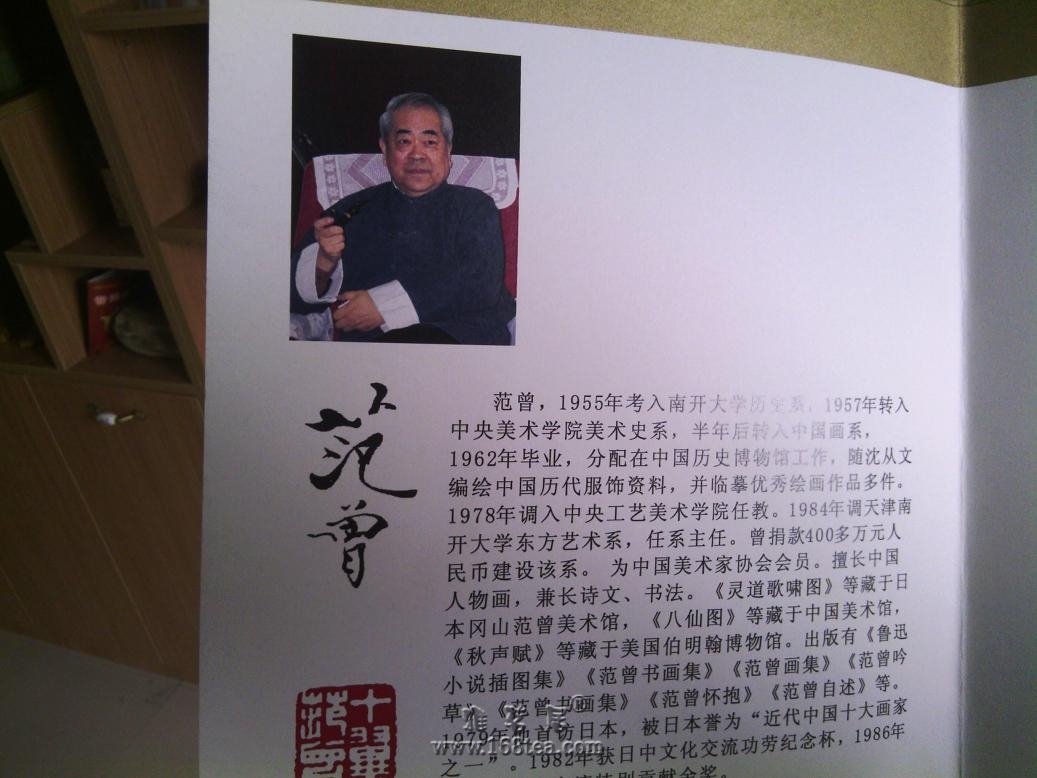 范曾
范曾，1955年考入南开大学历史系，1957年转入
中央美术学院美术史系，半年后转入中国画系，
1962年毕业，分配在中国历史博物馆工作，随沈从文
编绘中国历代服饰资料，并临摹优秀绘画作品多件。
1978年调入中央工艺美术学院任教。1984年调天津南
开大学东方艺术系，任系主任。曾捐款400多万元人
民币建设该系。 为中国美术家协会会员。擅长中国
人物画，兼长诗文、书法。《灵道歌啸图》等藏于日
本冈山范曾美术馆，《八仙图》等藏于中国美术馆，
《秋声赋》等藏于美国伯明翰博物馆。出版有《鲁迅
小说插图集》《范曾书画集》《范曾画集》《范曾吟
草》《范曾书画集》《范曾怀抱》《范曾自述》等。
1979年他首访日本，被日本誉为“近代中国十大画家
之一”。1982年获日中文化交流功劳纪念杯，1986年
特别贡献金奖。
十翼
范曾
www.168tea.com